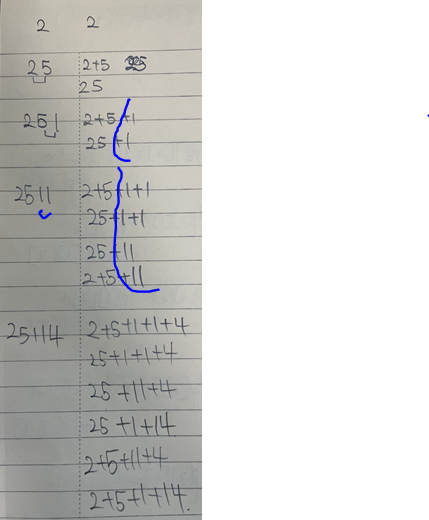 2 2
25 2+5
25
251 2+5+1
25+1
2511 2+5+1+1
25+1+1
25+11
2+5+11
25114 2+5+1+1+4
25+1+1+4
25+11+4
25+1+14
2+5+11+4
2+5+1+14.